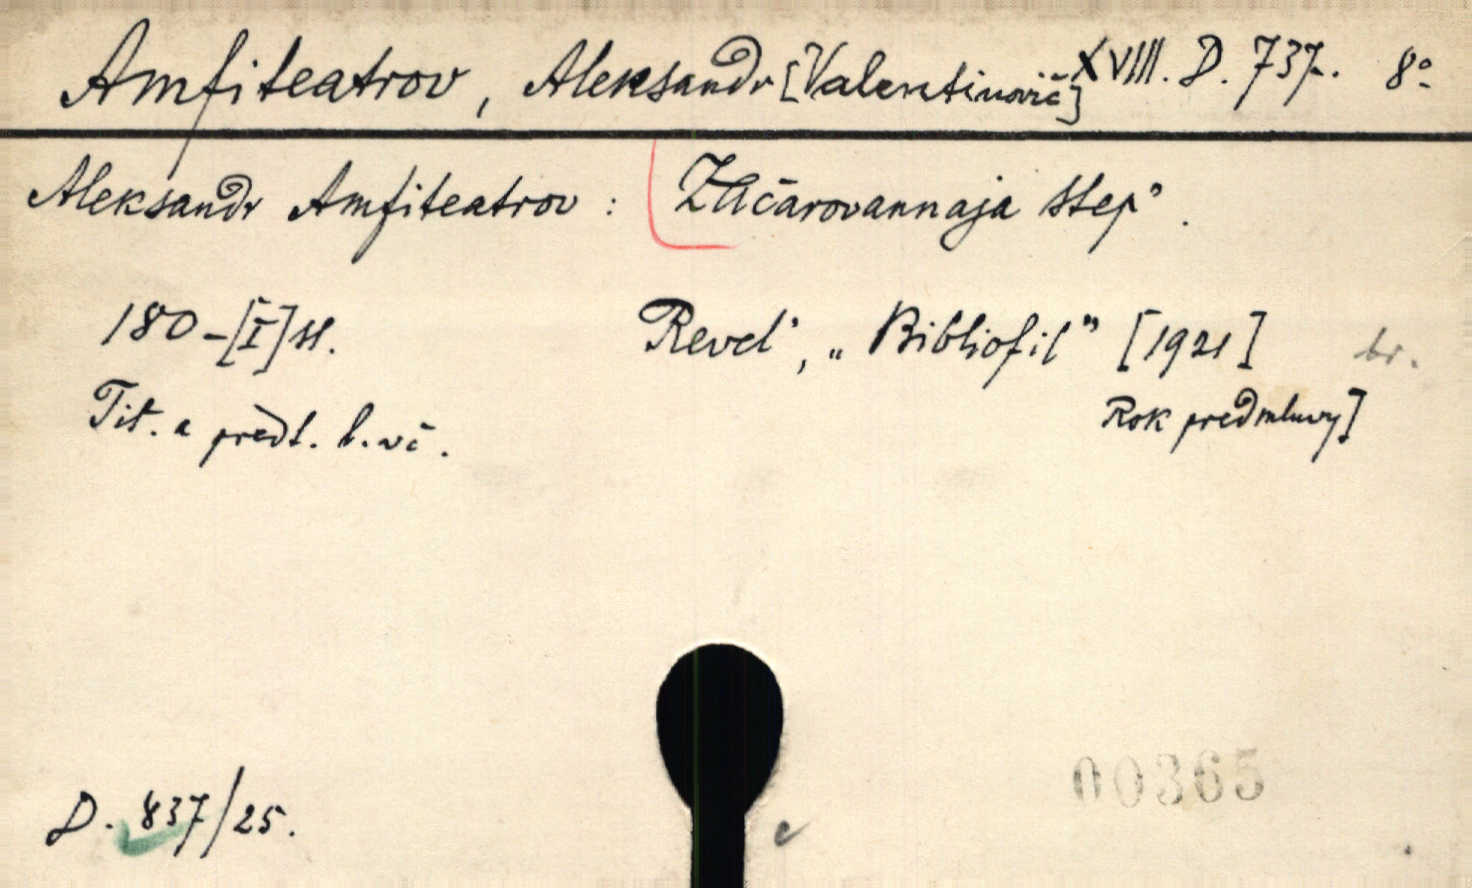 Amfiteatrov, Aleksandr [Valentinovič] XVIII. D. 737. 8°
Aleksandr Amfiteatrov : Začarovannaja step'.
180-[I] st. Revel', „Bibliofil” [1921] br.
Tit. a předt. b. vč. Rok předmluvy]
00365
D. 837/25. c